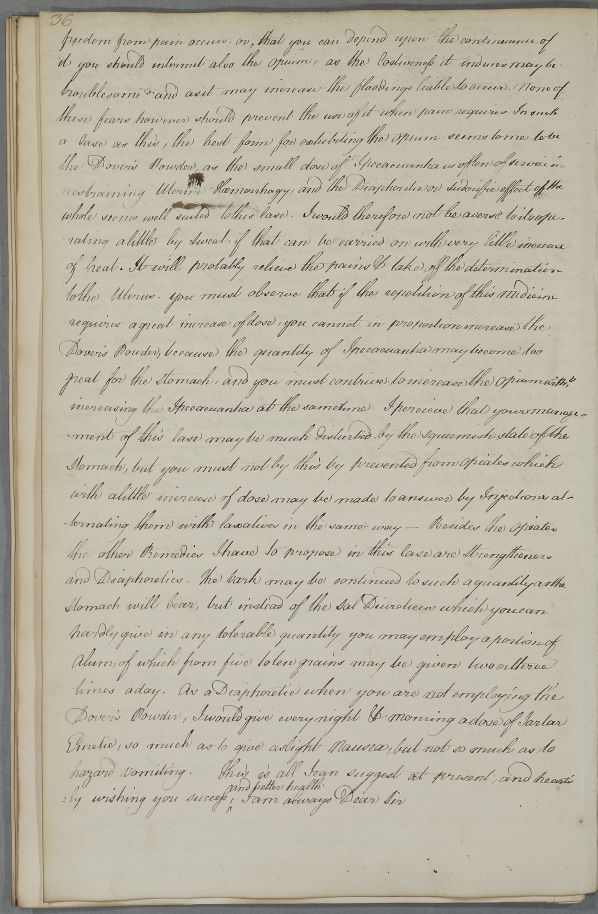 36
freedom from pain occurs, or, that you can depend upon the continuance of
it you should intermit also the opium, as the Costiveness it induces may be
troublesome and as it may increase the floodings liable to occur. None of
these fears however should prevent the use of it when pain requires. In such
a Case as this, the best form for exhibiting the opium seems to me to be
the Dover's Powder, as the small dose of Ipecacuanha is often of service in
restraining Uterine Hæmorrhagy, and the Diaphoretic or Sudorific effect of the
whole seems well suited to this Case. I would therefore not be averse to
a little by sweat, if that can be carried on with very little increase
of heat. It will probably relieve the pains & take off the determination
to the Uterus. you must observe that if the repetition of this Medicine
requires a great increase of dose, you cannot in proportion increase the
Dover's Powder, because the quantity of Ipecacuanha may become too
great for the Stomach, and you must contrive to increase the opium witht
increasing the Ipecacuanha at the same time. I percieve that your manage-
-ment of this Case may be much disturbed by the squeemish state of the
Stomach, but you must not by this by prevented from opiates which
with a little increase of dose may be made to answer by Injections al-
-ternating them with laxatives in the same way — Besides the opiates
the other Remedies I have to propose in this Case are Strengtheners
and Diaphoretics. The bark may be continued to such a quantity as the
Stomach will bear, but instead of the Sal Diureticus which you can
hardly give in any tolerable quantity you may employ a portion of
Alum, of which from five to ten grains may be given two or three
times a day. As a Diaphoretic when you are not employing the
Dover's Powder, I would give every night & morning a dose of Tartar
Emetic, so much as to give a slight Nausea, but not so much as to
hazard vomiting. This is all I can suggest at present, and hearti
and better health
-ly wishing you success, ^ I am always Dear Sir